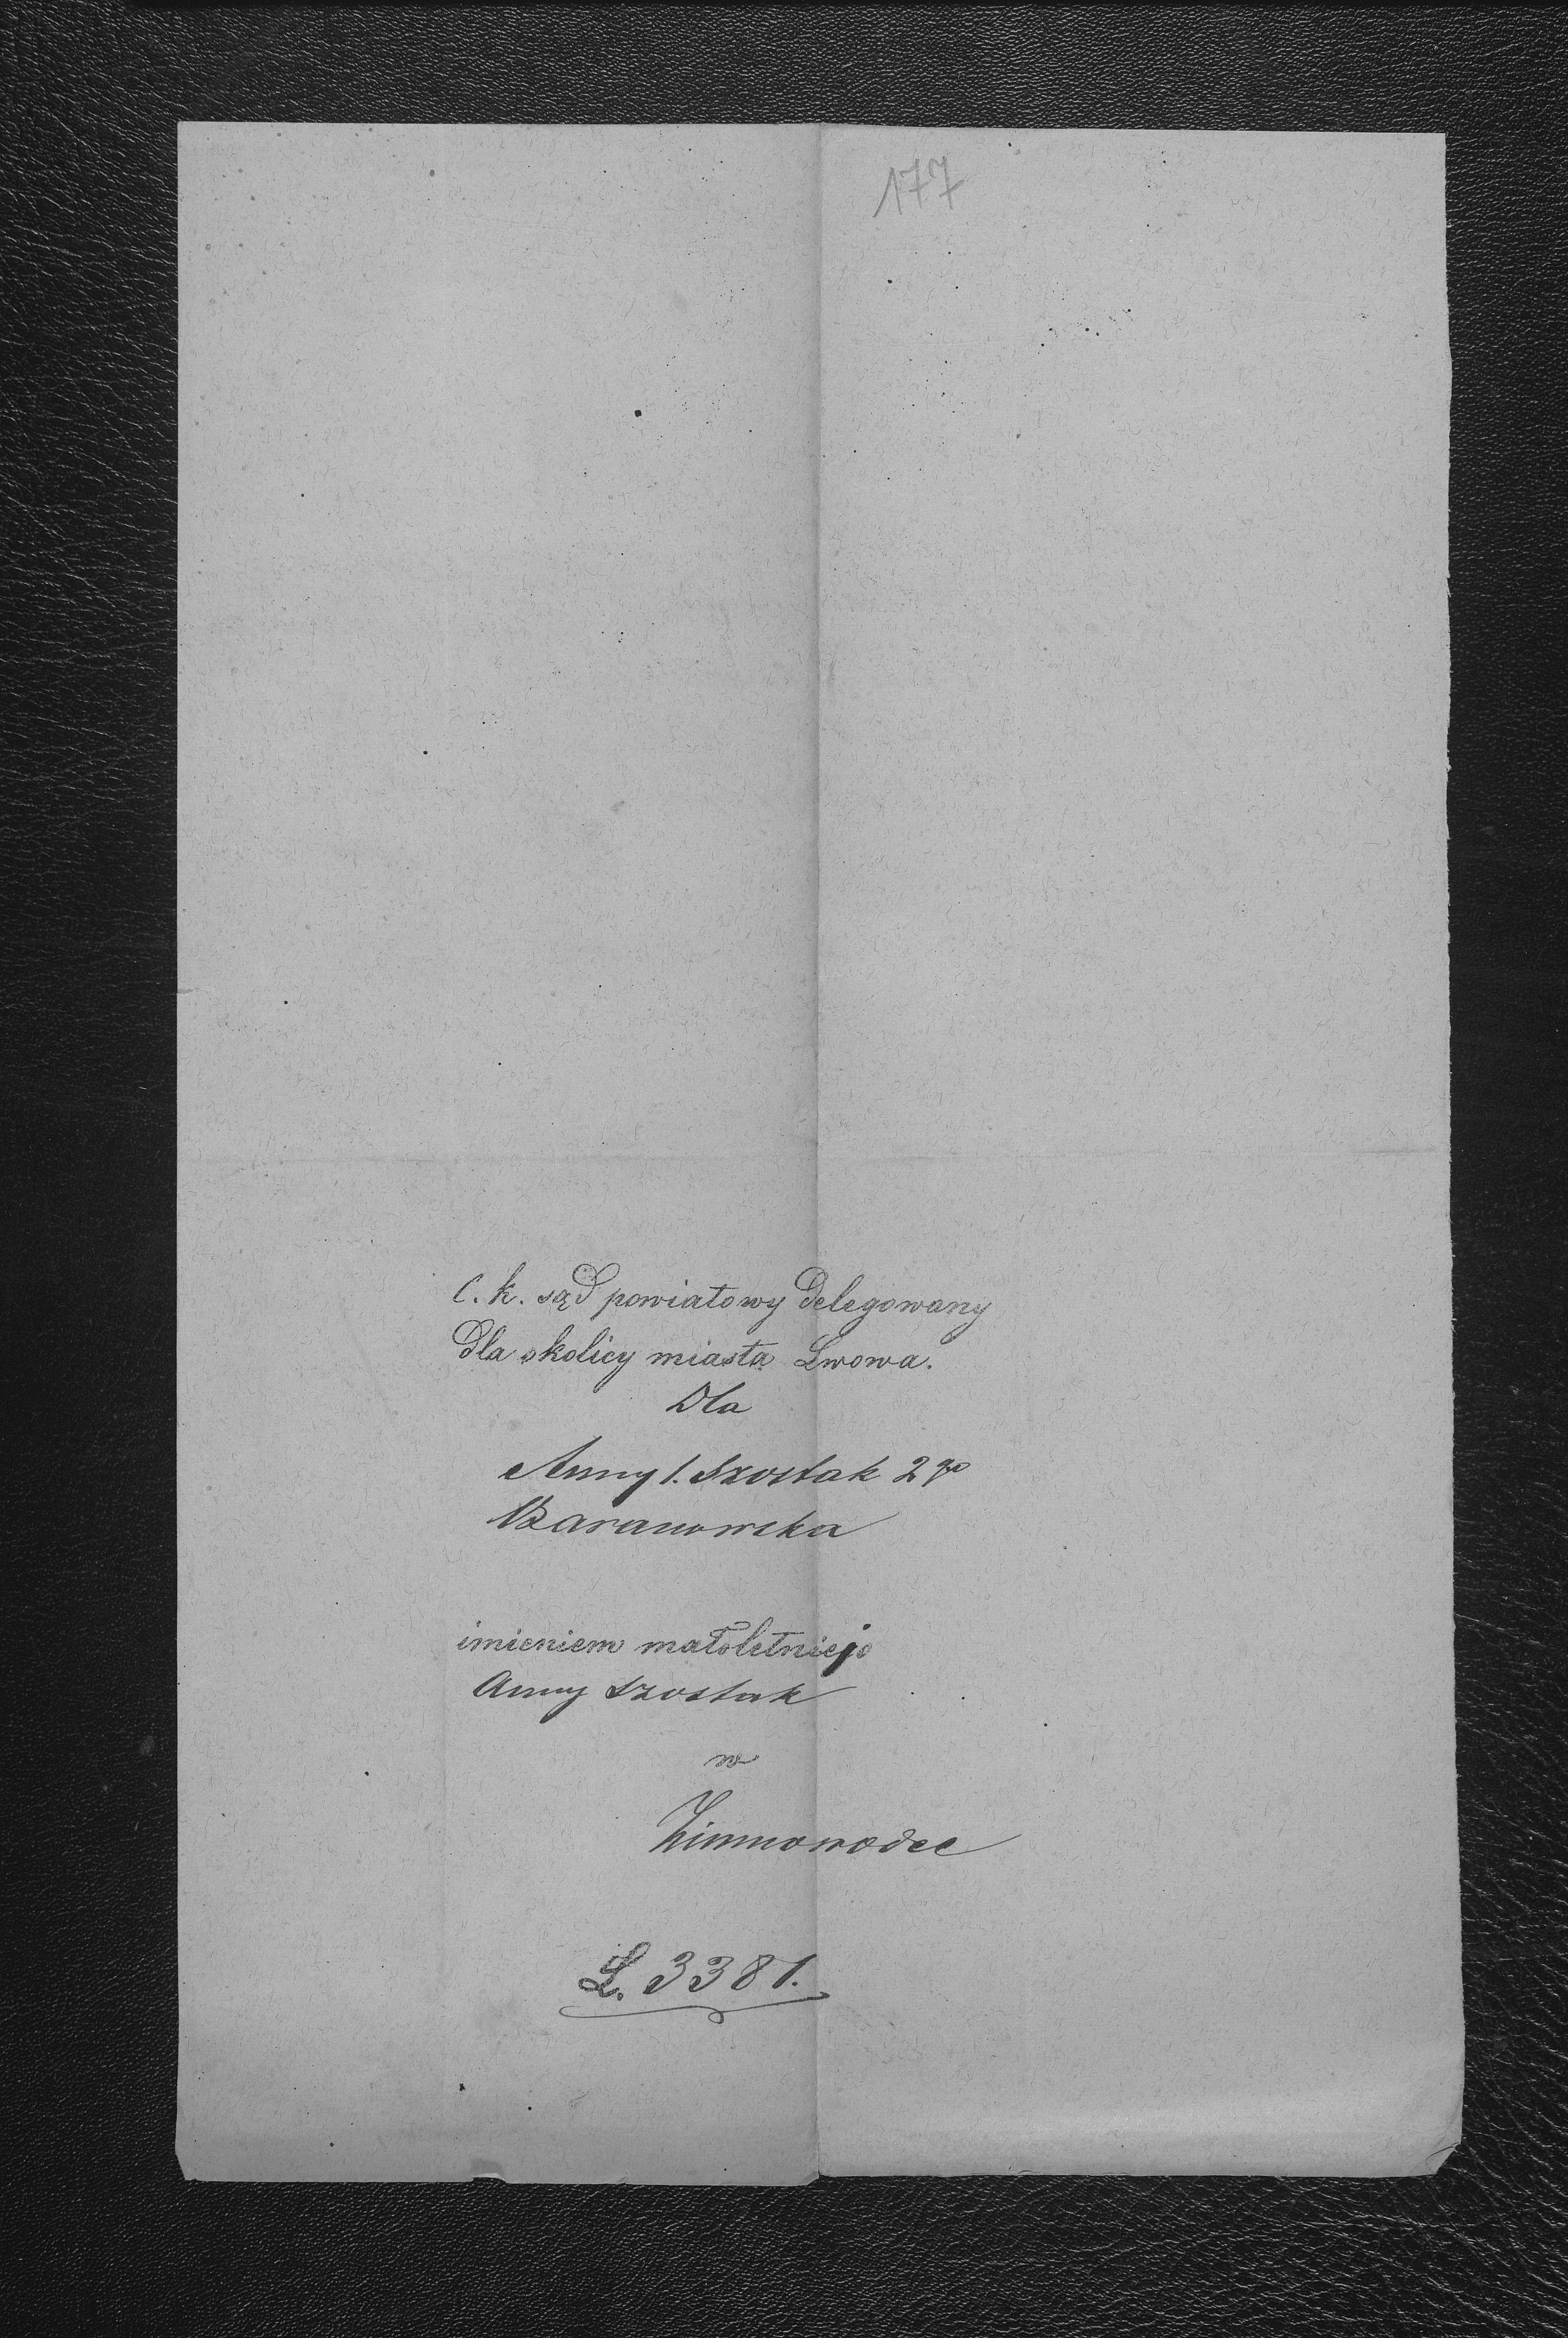 177
C. k. sąd powiatowy delegowany
dla okolicy miasta Lwowa.
Dla
Anny 1. Szostak 2go
Baranowska
imieniem małoletniej
Anny Szostak
w
Zimnowodee
L. 3381.